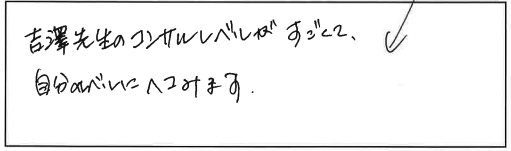 吉澤先生のコンサルレベルがすごくて、
自分のレベルにヘコみます.